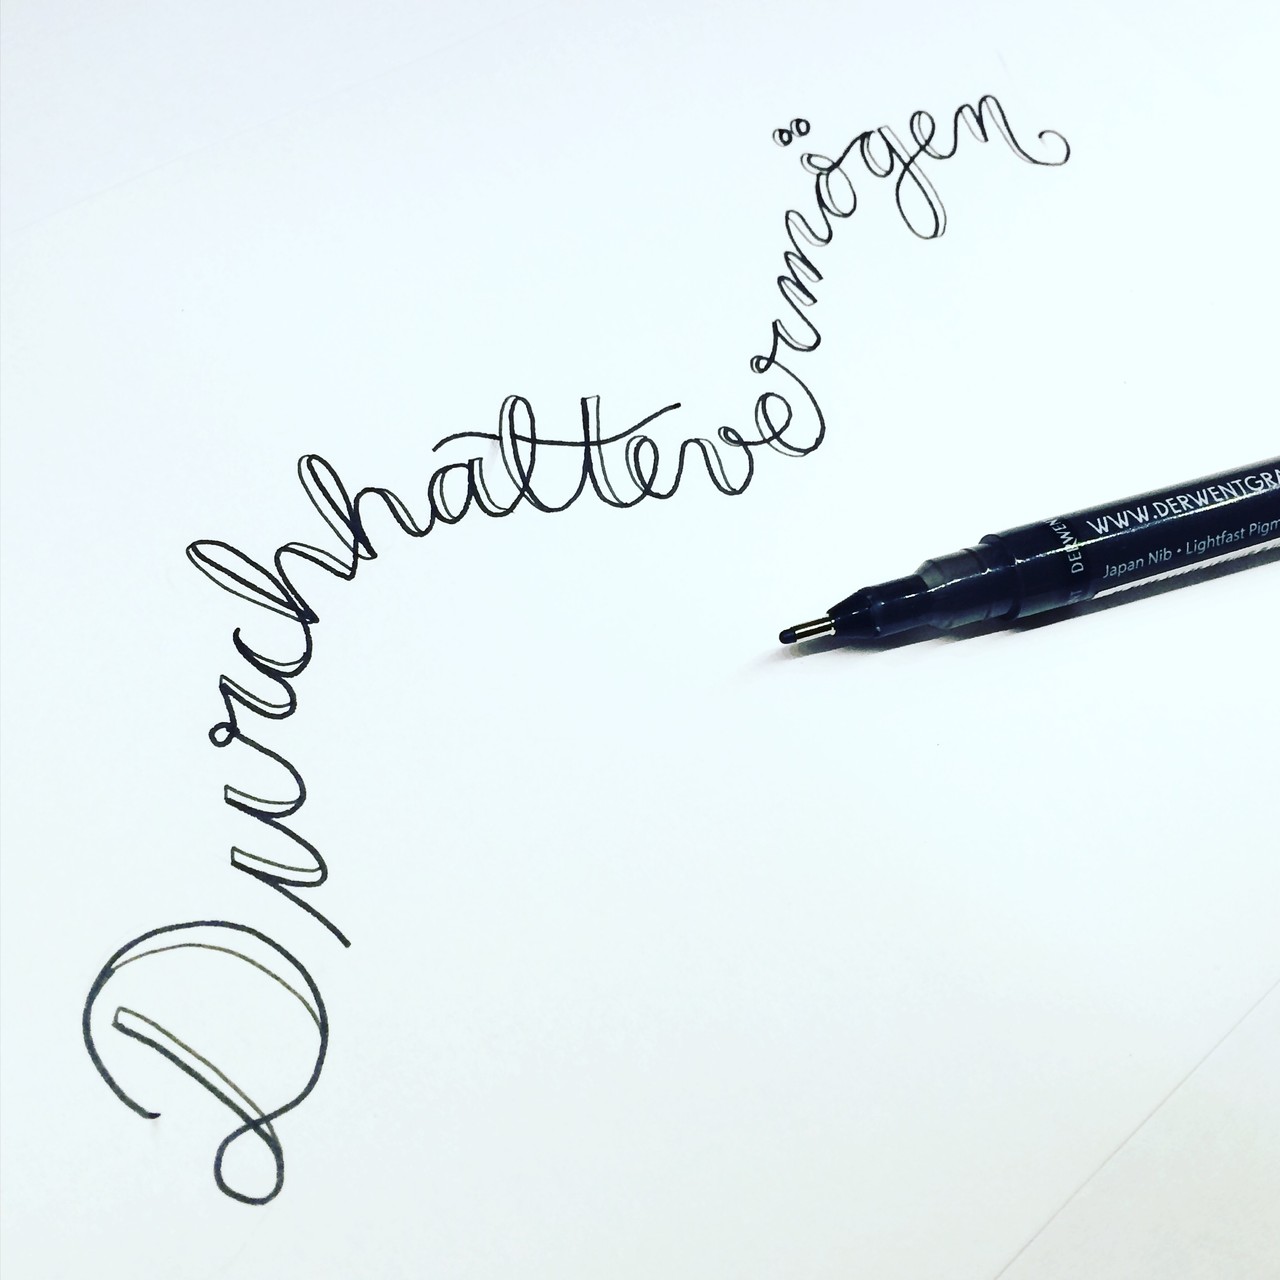 Durchhaltevermögen
DERWENT
WWW.DERWENTGRA
Japan Nib • Lightfast Pigm